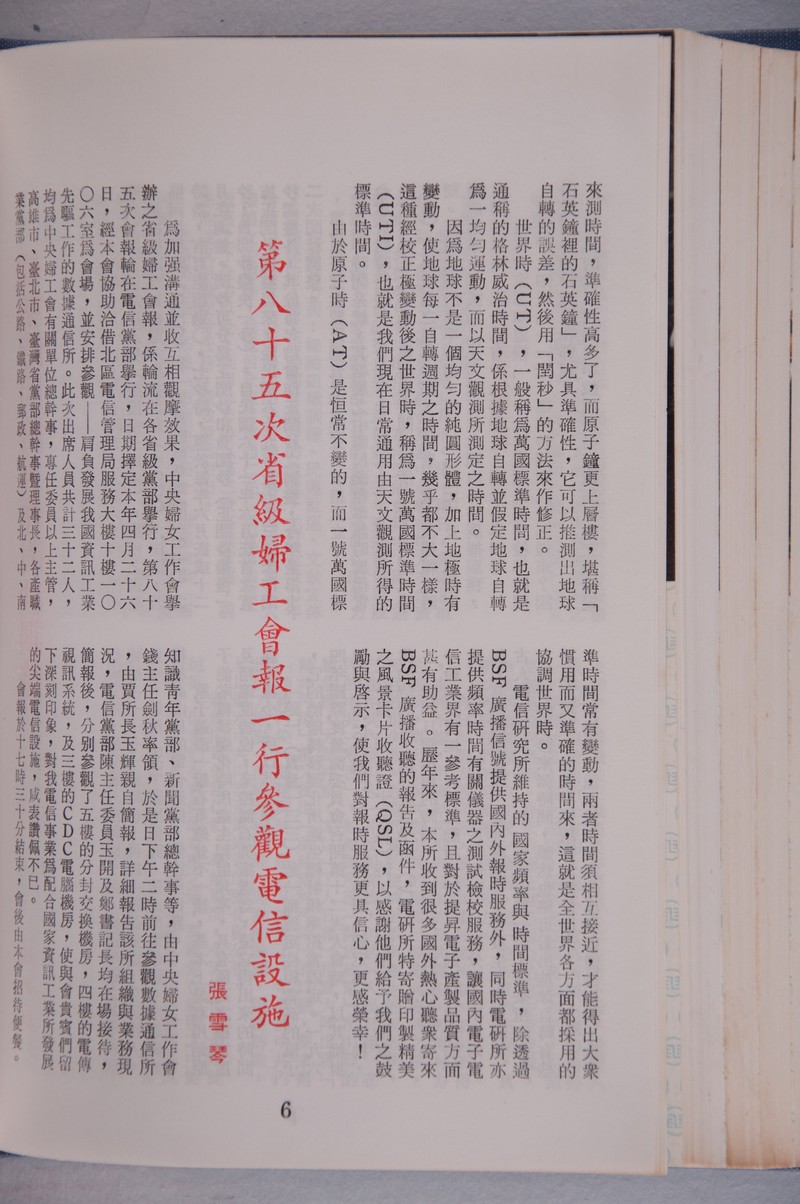 來測時間，準確性高多了，而原子鐘更上層樓，堪稱「
石英鐘裡的石英鐘」，尤具準確性，它可以推測出地球
自轉的誤差，然後用「閏秒」的方法來作修正。
世界時（UT），一般稱爲萬國標準時間，也就是
通稱的格林威治時間，係根據地球自轉並假定地球自轉
爲一均勻運動，而以天文觀測所測定之時間。
因爲地球不是一個均勻的純圓形體，加上地極時有
變動，使地球每一自轉週期之時間，幾乎都不大一樣，
這種經校正極變動後之世界時，稱爲一號萬國標準時間
（UT1），也就是我們現在日常通用由天文觀測所得的
標準時間。
由於原子時（AT）是恒常不變的，而一號萬國標
準時間常有變動，兩者時間須相互接近，才能得出大衆
慣用而又準確的時間來，這就是全世界各方面都採用的
協調世界時。
電信研究所維持的國家頻率與時間標準，除透過
BSF 廣播信號提供國內外報時服務外，同時電研所亦
提供頻率時間有關儀器之測試檢校服務，讓國內電子電
信工業界有一參考標準，且對於提昇電子產製品質方面
甚有助益。歷年來，本所收到很多國外熱心聽衆寄來
BSF 廣播收聽的報告及函件，電研所特寄贈印製精美
之風景卡片收聽證（QSL），以感謝他們給予我們之鼓
勵與啓示，使我們對報時服務更具信心，更感榮幸！
第八十五次省級婦工會報一行參觀電信設施
張雪琴
爲加强溝通並收互相觀摩效果，中央婦女工作會擧
辦之省級婦工會報，係輪流在各省級黨部擧行，第八十
五次會報輪在電信黨部擧行，日期擇定本年四月二十六
日，經本會協助洽借北區電信管理局服務大樓十樓一〇
〇六室爲會場，並安排參觀——肩負發展我國資訊工業
先驅工作的數據通信所。此次出席人員共計三十二人，
均爲中央婦工會有關單位總幹事，專任委員以上主管，
高雄市、臺北市、臺灣省黨部總幹事暨理事長，各產職
業黨部（包括公路、鐵路、郵政、航運）及北、中、南
知識青年黨部、新聞黨部總幹事等，由中央婦女工作會
錢主任劍秋率領，於是日下午二時前往參觀數據通信所
，由賈所長玉輝親自簡報，詳細報告該所組織與業務現
況，電信黨部陳主任委員玉開及鄭書記長均在場接待，
簡報後，分別參觀了五樓的分封交換機房，四樓的電傳
視訊系統，及三樓的ＣＤＣ電腦機房，使與會貴賓們留
下深刻印象，對我電信事業爲配合國家資訊工業所發展
的尖端電信設施，咸表讚佩不已。
會報於十七時三十分結束，會後由本會招待便餐。
6